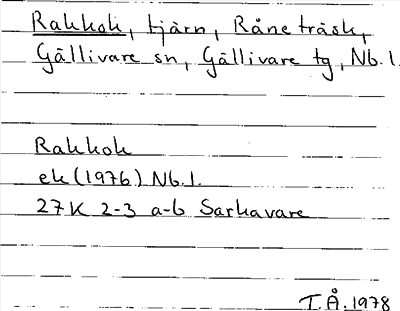 Rakkok, tjärn, Råneträsk,
Gällivare sn, Gällivare tg, Nb.l.
Rakkok
ek (1976) Nb.l.
27K 2-3 a-b Sarkavare
T.Å. 1978